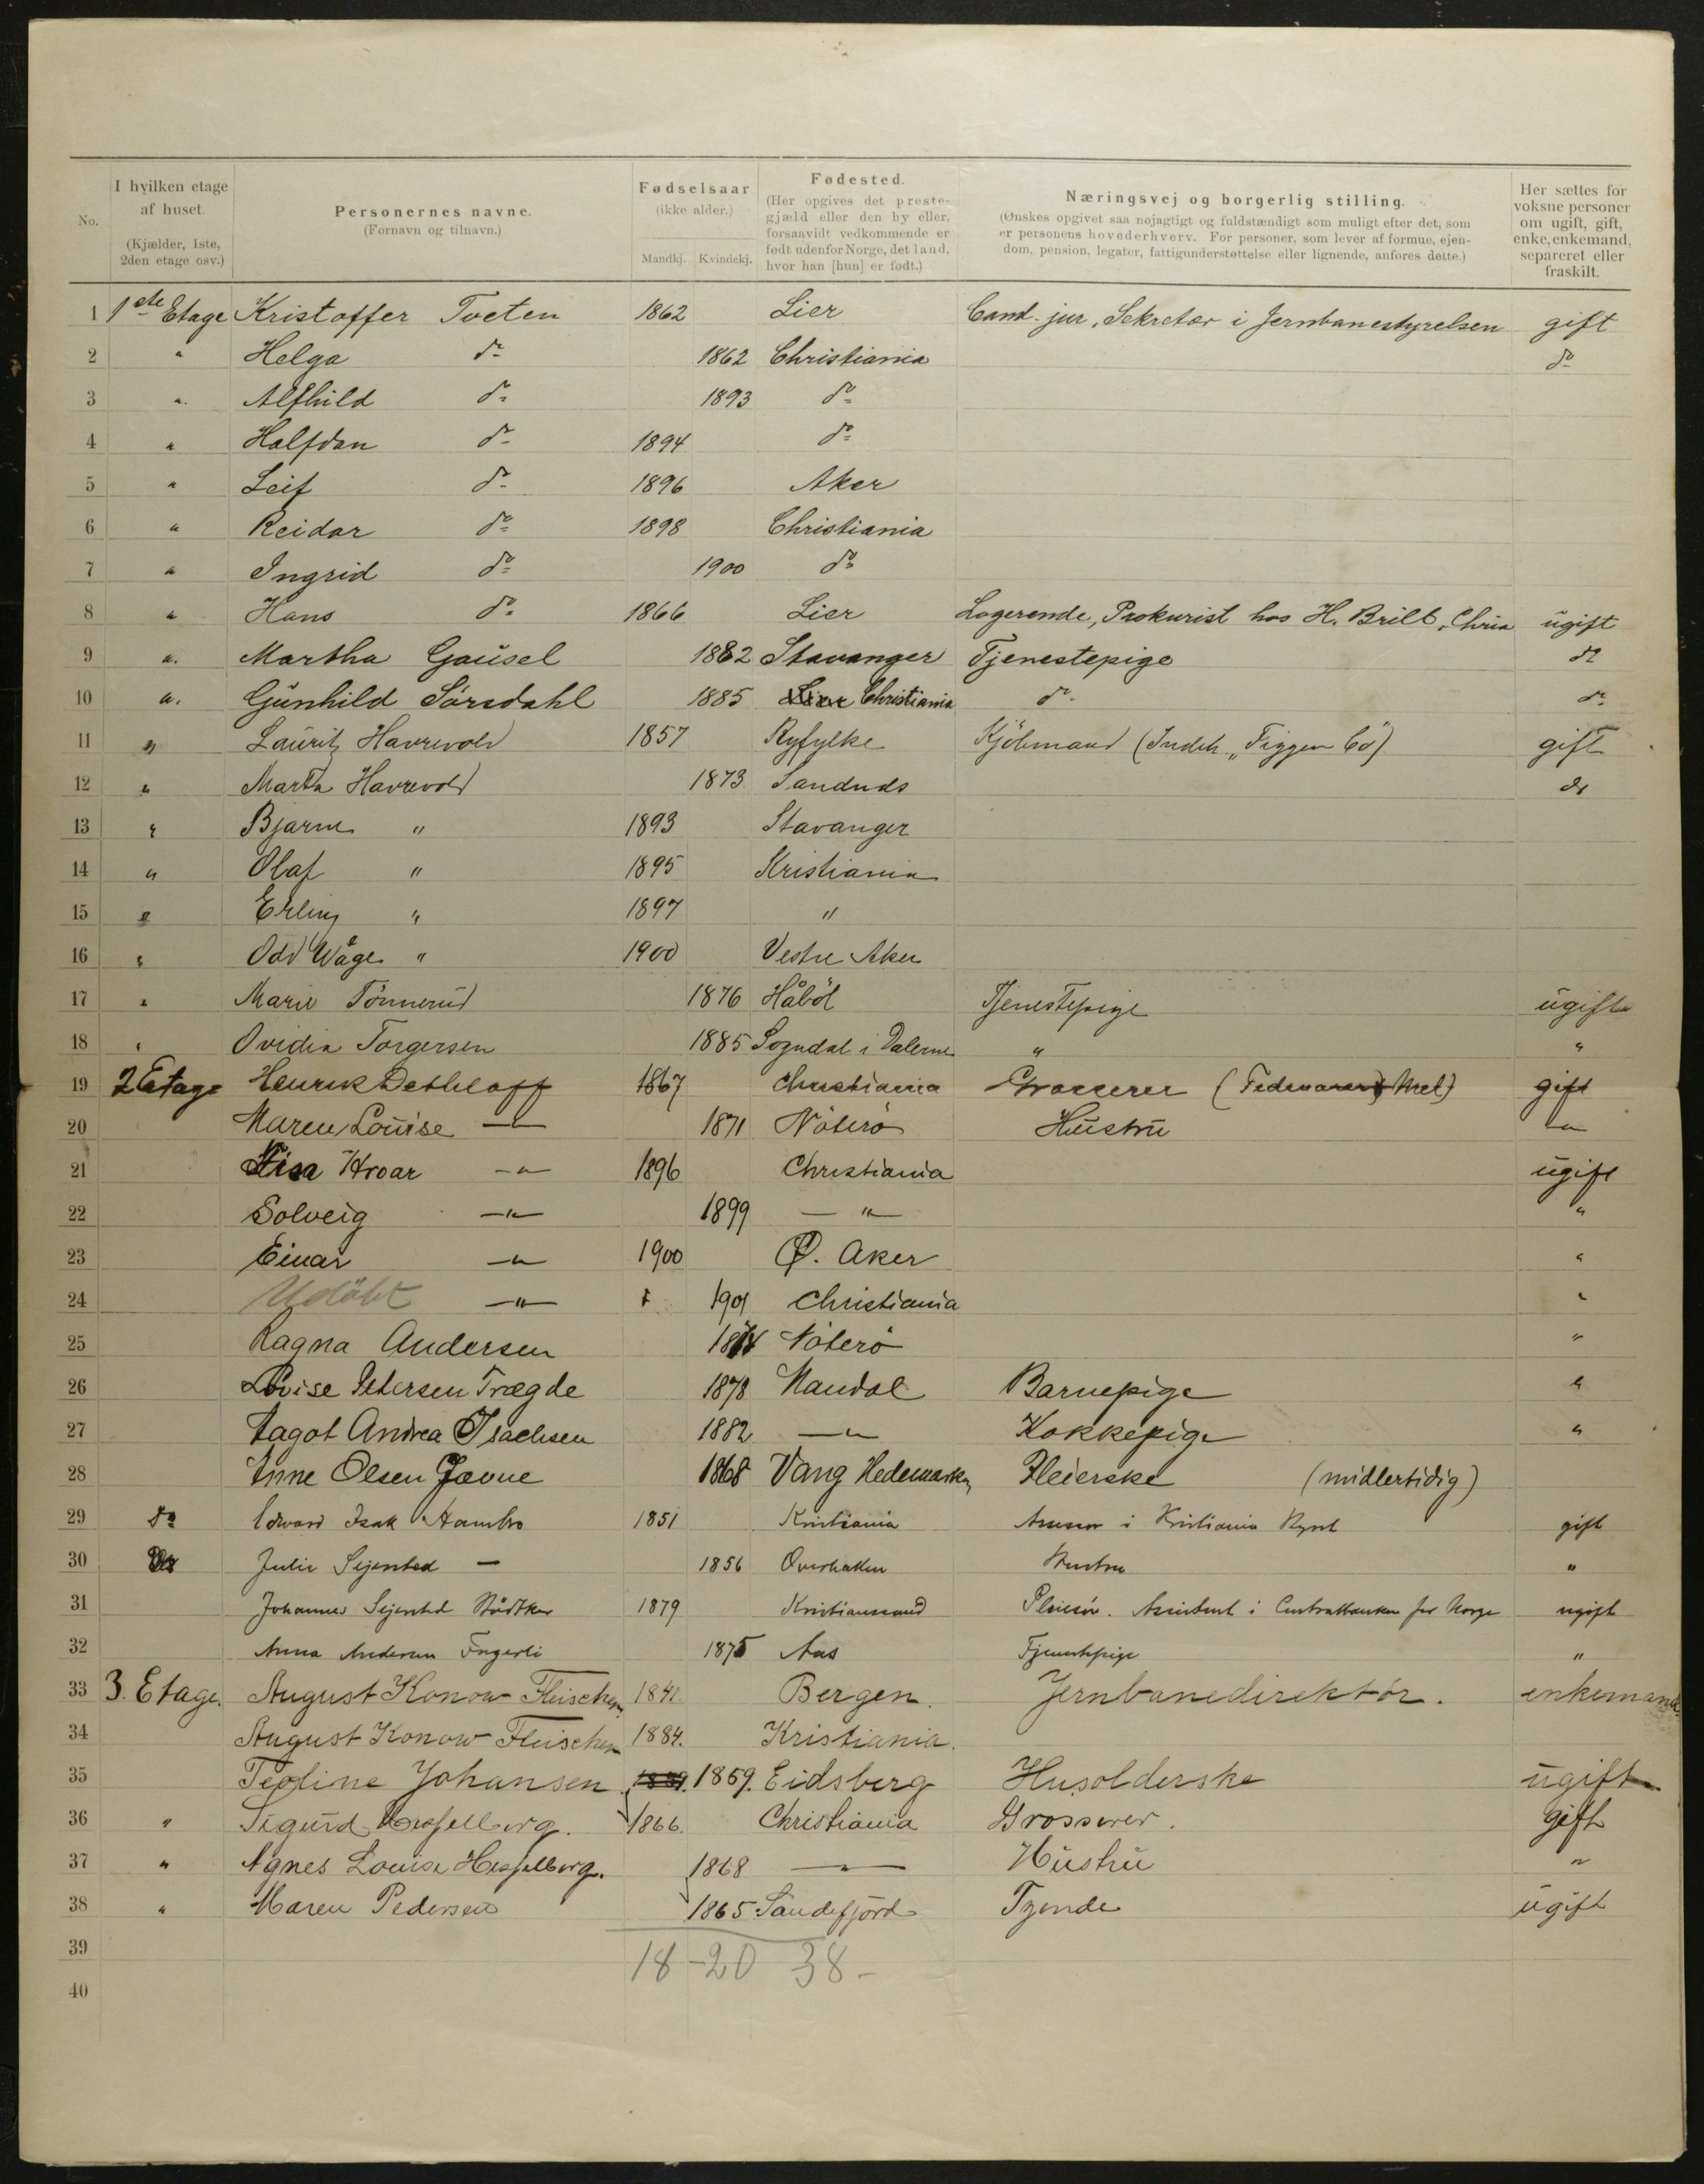 No.
I hvilken etage af huset.
(Kjælder, 1ste, 2den etage osv.)
Personernes navne.
(Fornavn og tilnavn.)
Fødselsaar
(ikke alder.)
Mandkj. Kvindekj.
Fødested.
(Her opgives det præste-
gjæld eller den by eller,
forsaavidt vedkommende er
født udenfor Norge, det land,
hvor han [hun] er født.)
Næringsvej og borgerlig stilling.
(Ønskes opgivet saa nøjagtigt og fuldstændigt som muligt efter det, som
er personens hovederhverv. For personer, som lever af formue, ejen-
dom, pension, legater, fattigunderstøttelse eller lignende, anføres dette.)
Her sættes for
voksne personer
om ugift, gift,
enke, enkemand,
separeret eller
fraskilt.
1 1ste Etage Kristoffer Tveten 1862 Lier Cand. jur, Sekretær i Jernbanestyrelsen gift
2 " Helga do 1862 Christiania do
3 " Alfhild do 1893 do
4 " Halfdan do 1894 do
5 " Leif do 1896 Aker
6 " Reidar do 1898 Christiania
7 " Ingrid do 1900 do
8 " Hans do 1866 Lier Logerende, Prokurist hos H. Brill, Chria ugift
9 " Martha Gausel 1882 Stavanger Tjenestepige do
10 " Gunhild Sørsdahl 1885 Lier Christiania do do
11 " Lauritz Havrevold 1857 Ryfylke Kjøbmand (Indeh. " Co) gift
12 " Marta Havrevold 1873 do
13 " Bjarne " 1893 Stavanger
14 " Olaf " 1895 Kristiania
15 " Erling " 1897 "
16 " Odd Wåge " 1900 Vestre Aker
17 " Marie Tønnerud 1876 Håböl Tjenestepige ugift
18 " Ovidia Torgersen 1885 Sogndal i Dalerne " "
19 2 Etage Henrik Dethloff 1867 Christiania Grosserer gift
20 Maren Louise —"— 1871 Nöterö Hustru —"—
21 Hroar —"— 1896 Christiania ugift
22 Solveig —"— 1899 —"— "
23 Einar —"— 1900 Ø. Aker "
24 Udöbt —"— 1901 Christiania "
25 Ragna Andersen Nöterö "
26 Lovise Petersen Trægde 1878 Mandal Barnepige "
27 Aagot Andrea Isachsen 1882 —"— Kokkepige "
28 Anne Olsen Jevne 1868 Vang Hedemarken Pleierske (midlertidig)
29 do Edvard Isak Hambro 1851 Kristiania Assessor i Kristiania Byret gift
30 do Julie Sejersted — 1856 Overhallen Hustru "
31 Johannes Sejersted Bødtker 1879 Kristianssand Pleiesön. Assistent i Centralbanken for Norge ugift
32 Anna Andersen 1875 Aas Tjenestepige "
33 3. Etage. August Konow Fleischer 1841. Bergen. Jernbanedirektör. enkemand
34 August Konow Fleischer 1884. Kristiania.
35 Teoline Johansen 1859. 1859. Eidsberg Husolderske ugift
36 " Sigurd Hesselberg. 1866. Christiania Grosserer. gift
37 " Agnes Louise Hesselberg. 1868 —"— Hustru "
38 " Maren Pedersen 1865 Sandefjord Tyende ugift
39
18-20 38-
40